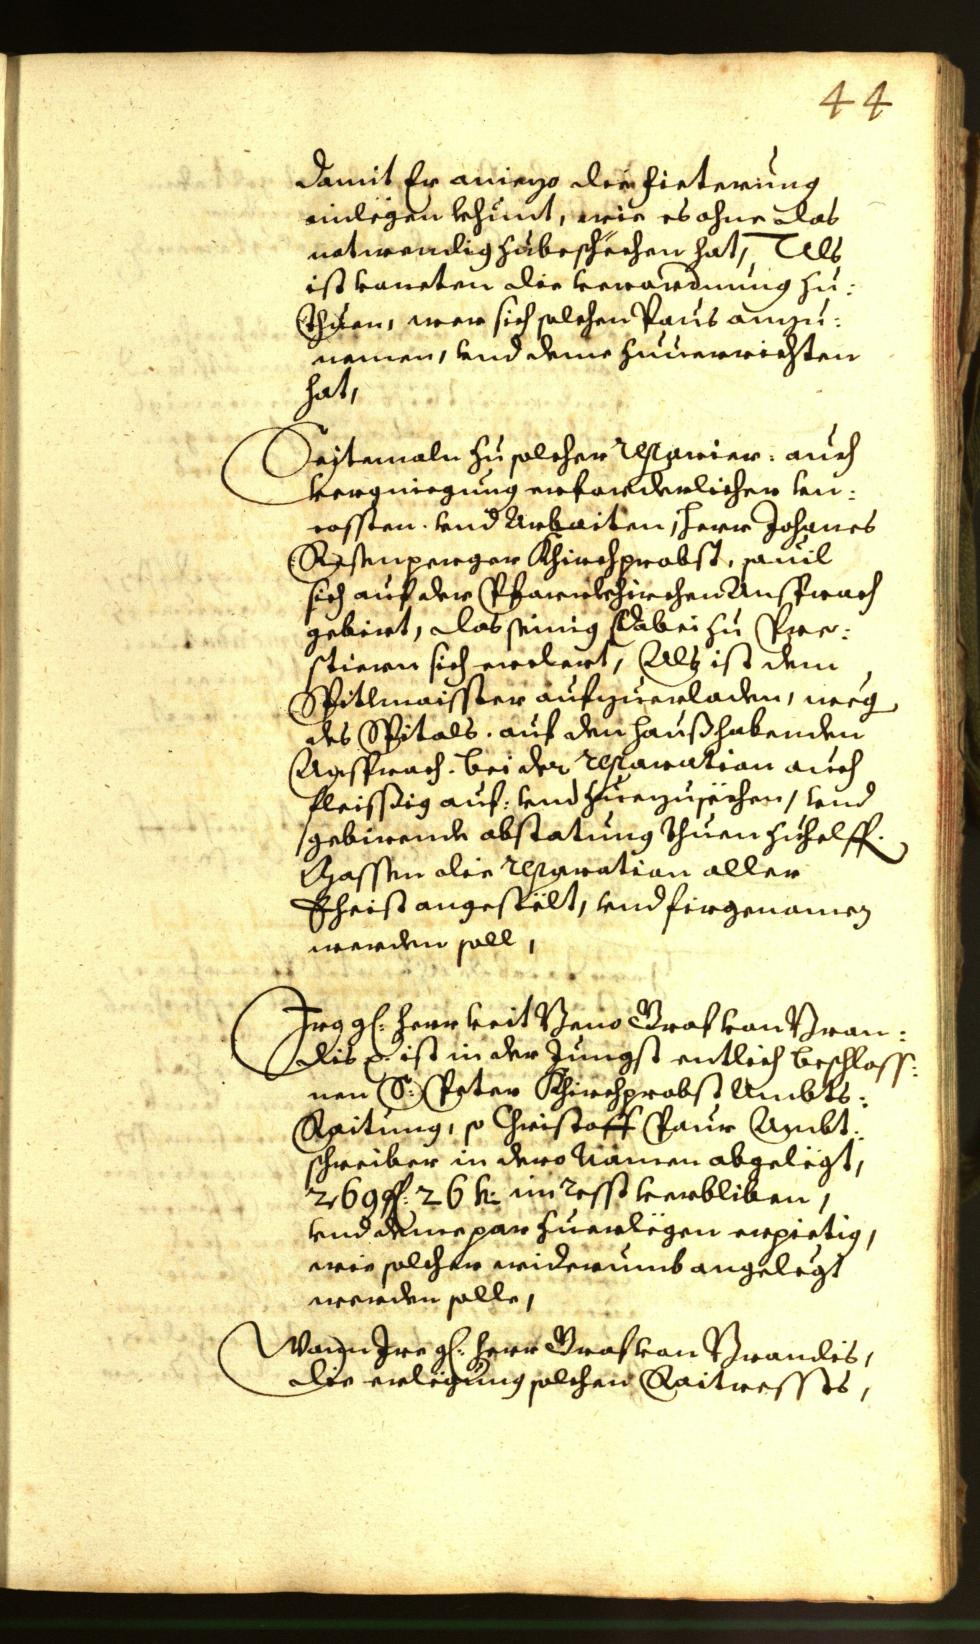 44
damit Er aniezo die fieterung
einlegen khünt, wie es ohne das
notwendig zubeschechen hat, Als
ist vonneten die verordnung zu:
thuen, wer sich solchen Paus anzu:
nemen, vnd deme zuuerrichten
hat,
Seitemaln zu solcher reparier: auch
vergniegung erforderlicher vn:
cossten vnd Arbaiten, Herr Johanes
Rosenperger Khirchprobst, souil
sich auf der Pfarrkhirchen Ansprach
gebirt, das seinig dabei zu Pre:
stiern sich erclert, Als ist dem
Spitlmaisster aufzuerladen, weg
des Spitals auf den hauß habenden
Ansprach bei der reparation auch
fleissig auf: vnd zuezusechen, vnd
gebirende abstatung thuen zuhelff.
Massen die reparation aller
Eheist angestelt, vnd firgenomen
werden soll,
Irg gl: Herr Veit Beno Graf von Bran:
dis ist in der Jungst entlich beschloss:
nen S: Peter Khirchprobst Ambts:
Raitung, so Christoff Paur Ambt:
schreiber in dero Namen abgelegt,
269 fl: 26 kr: im Resst verbliben,
vnd deme par zuerlegen erpietig,
wie solcher widerumb angelegt
werden solle,
Wann Ire gl: Herr Graf von Brandis,
die erlegung solchen Raitressts,